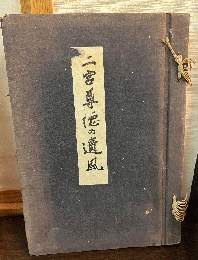 二宮尊徳の遺風